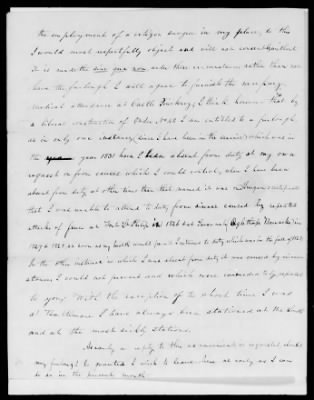 the employment of a citizen surgeon in my place, to this
I would most respectfully object and will not consent
It is made the sine qua non under these circumstances rather than not
have the furlough I will agree to furnish the necessary
medical attendance at Castle Pinckney, I think however that by
a liberal construction of Order No 48 I am entitled to a furlough,
as in only one instance, since I have been in the service, which was in
the year 1831 have I been absent from duty at my own
request or from causes which I could control, when I have been
absent from duty at other times than that named it was on Surgeons certificate
that I was unable to attend to duty from disease caused by repeated
attacks of fever at Fort in 1826 and
1827 & 1828 as soon as my health would permit I returned to duty which was in the fall of 1828
In the other instances in which I was absent from duty it was caused by circum
stances I could not prevent and which were immediately reported
to you. With the exception of a short time I was
at I have always been stationed at the South
and at the most sickly stations.
As early a reply to this as convenient is requested, should
my furlough be granted I wish to leave here as early as I can
do so in the present month.